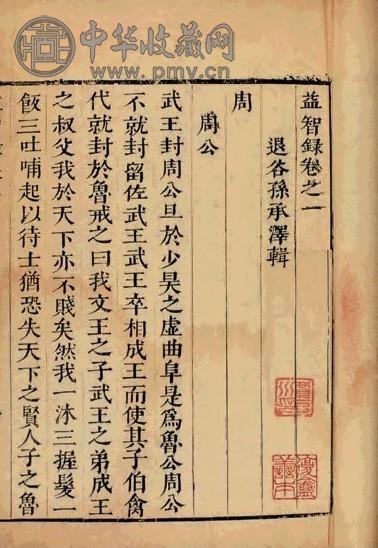 中华收藏网
www.pmv.cn
益智録卷之一
退谷孫承澤輯
周
周公
武王封周公旦於少昊之虛曲阜是爲魯公周公
不就封留佐武王武王卒相成王而使其子伯禽
代就封於魯戒之曰我文王之子武王之弟成王
之叔父我於天下亦不賤矣然我一沐三握髮一
飯三吐哺起以待士猶恐失天下之賢人子之魯